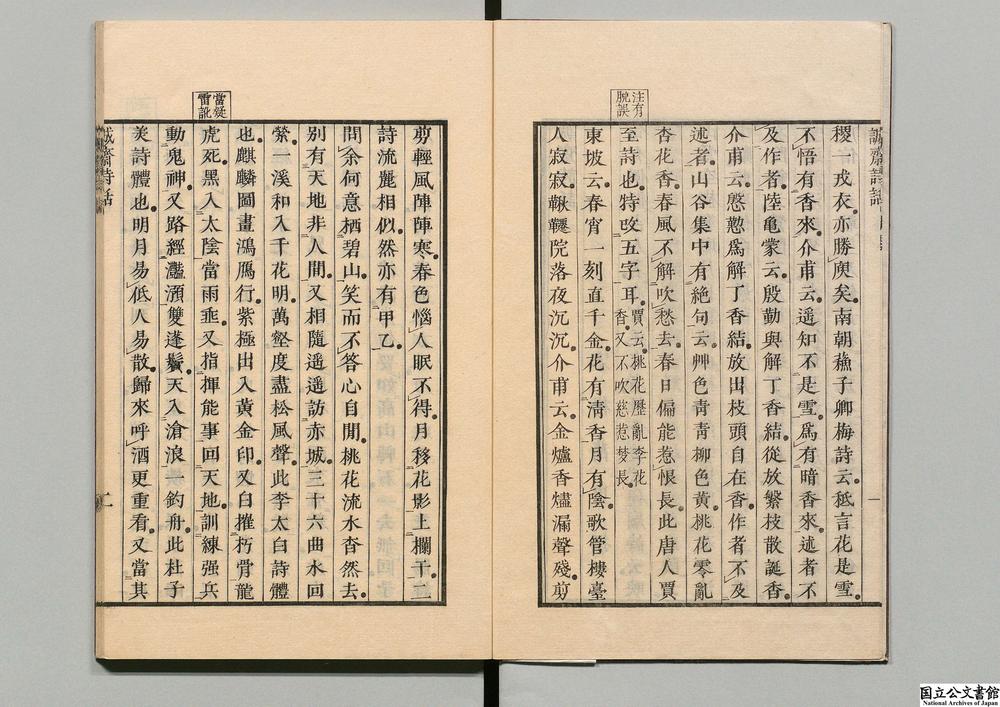 誠齋詩話
注有
脫誤
稷一戎衣亦勝庾矣南朝蘓子卿梅詩云秪言花是雪
不悟有香來介甫云遥知不是雪爲有暗香來述者不
及作者陸龜蒙云殷勤與解丁香結從放繁枝散誕香
介甫云慇懃爲解丁香結放出枝頭自在香作者不及
述者山谷集中有絶句云艸色青青柳色黄桃花零亂
杏花香春風不解吹愁去春日偏能惹恨長此唐人賈
至詩也特改五字耳賈云桃花歷亂李花
香又不吹愁惹夢長
東坡云春宵一刻直千金花有淸香月有陰歌管樓臺
人寂寂鞦韆院落夜沉沉介甫云金爐香燼漏聲殘剪
一
當疑
雷訛
剪輕風陣陣寒春色惱人眠不得月移花影上欄干二
詩流麗相似然亦有甲乙
問余何意栖碧山笑而不答心自閒桃花流水杳然去
别有天地非人間又相隨遥遥訪赤城三十六曲水回
縈一溪初入千花明萬壑度盡松風聲此李太白詩體
也麒麟圖畫鴻鴈行紫極出入黄金印又白摧朽骨龍
虎死黑入太陰當雨垂又指揮能事回天地訓練强兵
動鬼神又路經灩澦雙蓬鬢天入滄浪一釣舟此杜子
美詩體也明月易低人易散歸來呼酒更重看又當其
誠齋詩話
二
国立公文書館
National Archives of Japan